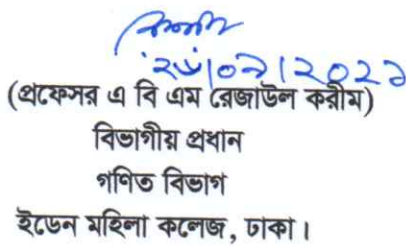 ২৮|০৯|২০২১
(প্রফেসর এ বি এম রেজাউল করীম)
বিভাগীয় প্রধান
গণিত বিভাগ
ইডেন মহিলা কলেজ, ঢাকা।